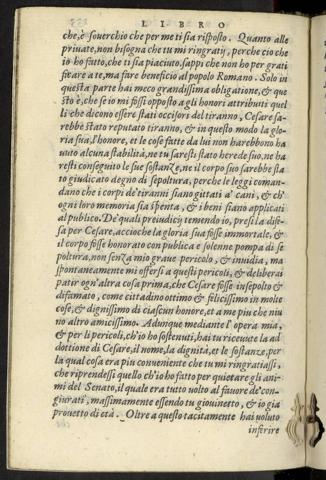 LIBRO
che, è souerchio che per me ti sia risposto. Quanto alle
priuate, non bisogna che tu mi ringratij, perche cio che
io ho futto, che ti sia piaciuto, sappi che non ho per grati
ficare a te, ma fure beneficio al popolo Romano. Solo in
questa parte hai meco grandissima obligatione, & que
sto è, che se io mi fossi opposto a gli honori attributi quel
li che dicono essere stati occisori del tiranno, Cesare sa-
rebbe stato reputato tiranno, & in questo modo la glo-
ria sua, l'honore, et le cose fatte da lui non harebbono ha
uuto alcuna stabilità, ne tu saresti stato herede suo, ne ha
resti conseguito le sue sostanze, ne il corpo suo sarebbe sta
to giudicato degno di sepoltura, perche le leggi coman-
dano che i corpi de'tiranni siano gittati a' cani, & ch'o
gni loro memoria sia spenta, & i beni siano applicati
al publico. De'quali preiudicij temendo io, presi la dife-
sa per Cesare, accioche la gloria sua fosse immortale, &
il corpo fosse honorato con publica e solenne pompa di se
poltura, non senza mio graue pericolo, & inuidia, ma
spontaneamente mi offersi a questi pericoli, & deliberai
patir ogn'altra cosa prima, che Cesare fosse insepolto &
difamato, come cittadino ottimo & felicissimo in molte
cose, & dignissimo di ciascun honore, et a me piu che niu
no altro amicissimo. Adunque mediante l'opera mia,
& per li pericoli, ch'io ho sostenuti, hai tu riceuute la ad
dottione di Cesare, il nome, la dignità, et le sostanze, per
la qual cosa era piu conueniente che tu mi ringratiassi,
che riprendessi quello ch'io ho futto per quietare gli ani-
mi del Senato, il quale era tutto volto al fauore de'con-
giurati, massimamente essendo tu giouinetto, & io gia
prouetto di età. Oltre a questo tacitamente hai uoluto
inferire